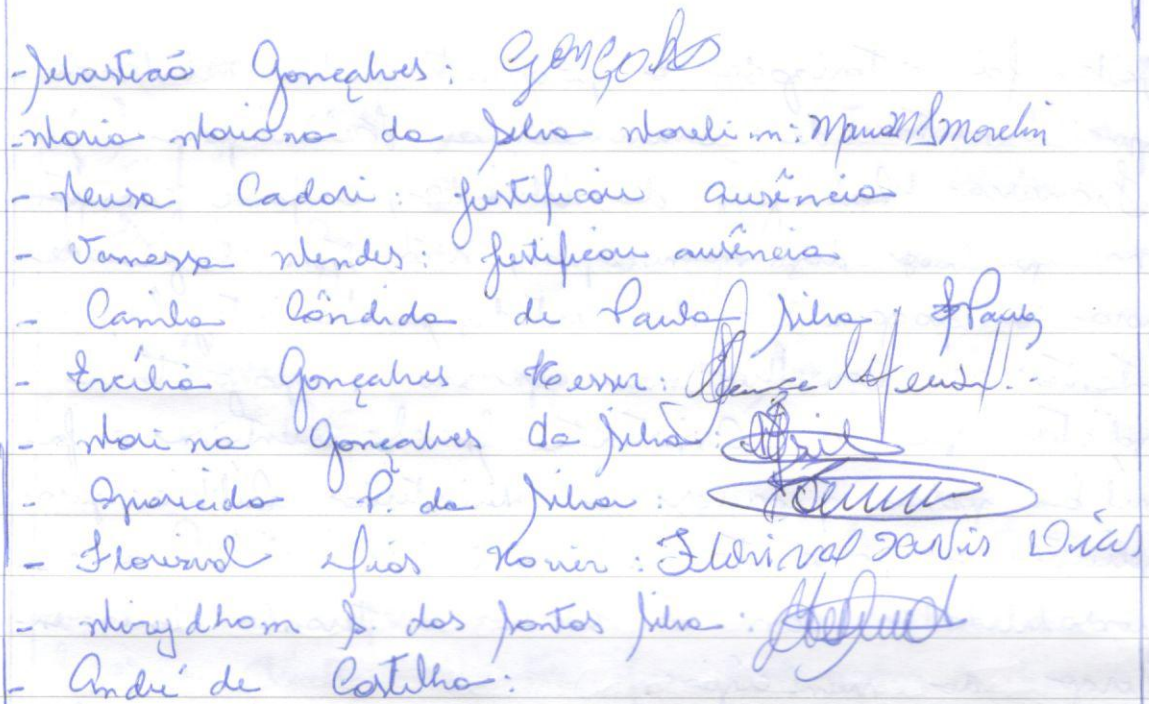 - Sebastiaó Gonçalves: Gonçalves
- Maria Mariana da Silva Morelim: Maria M S Morelin
- Neusa Cadori: justificou ausência
- Vanessa Mendes: justificou ausência
- Camila Cândida de Paula Silva: Paula
- Ercília Gonçalves Messer:
- Marina Gonçalves da Silva:
- Aparecida P. da Silva:
- Florisval Dias Xavier: Florisval Xavier Dias
- S. dos Santos Silva:
- André de Castilho: